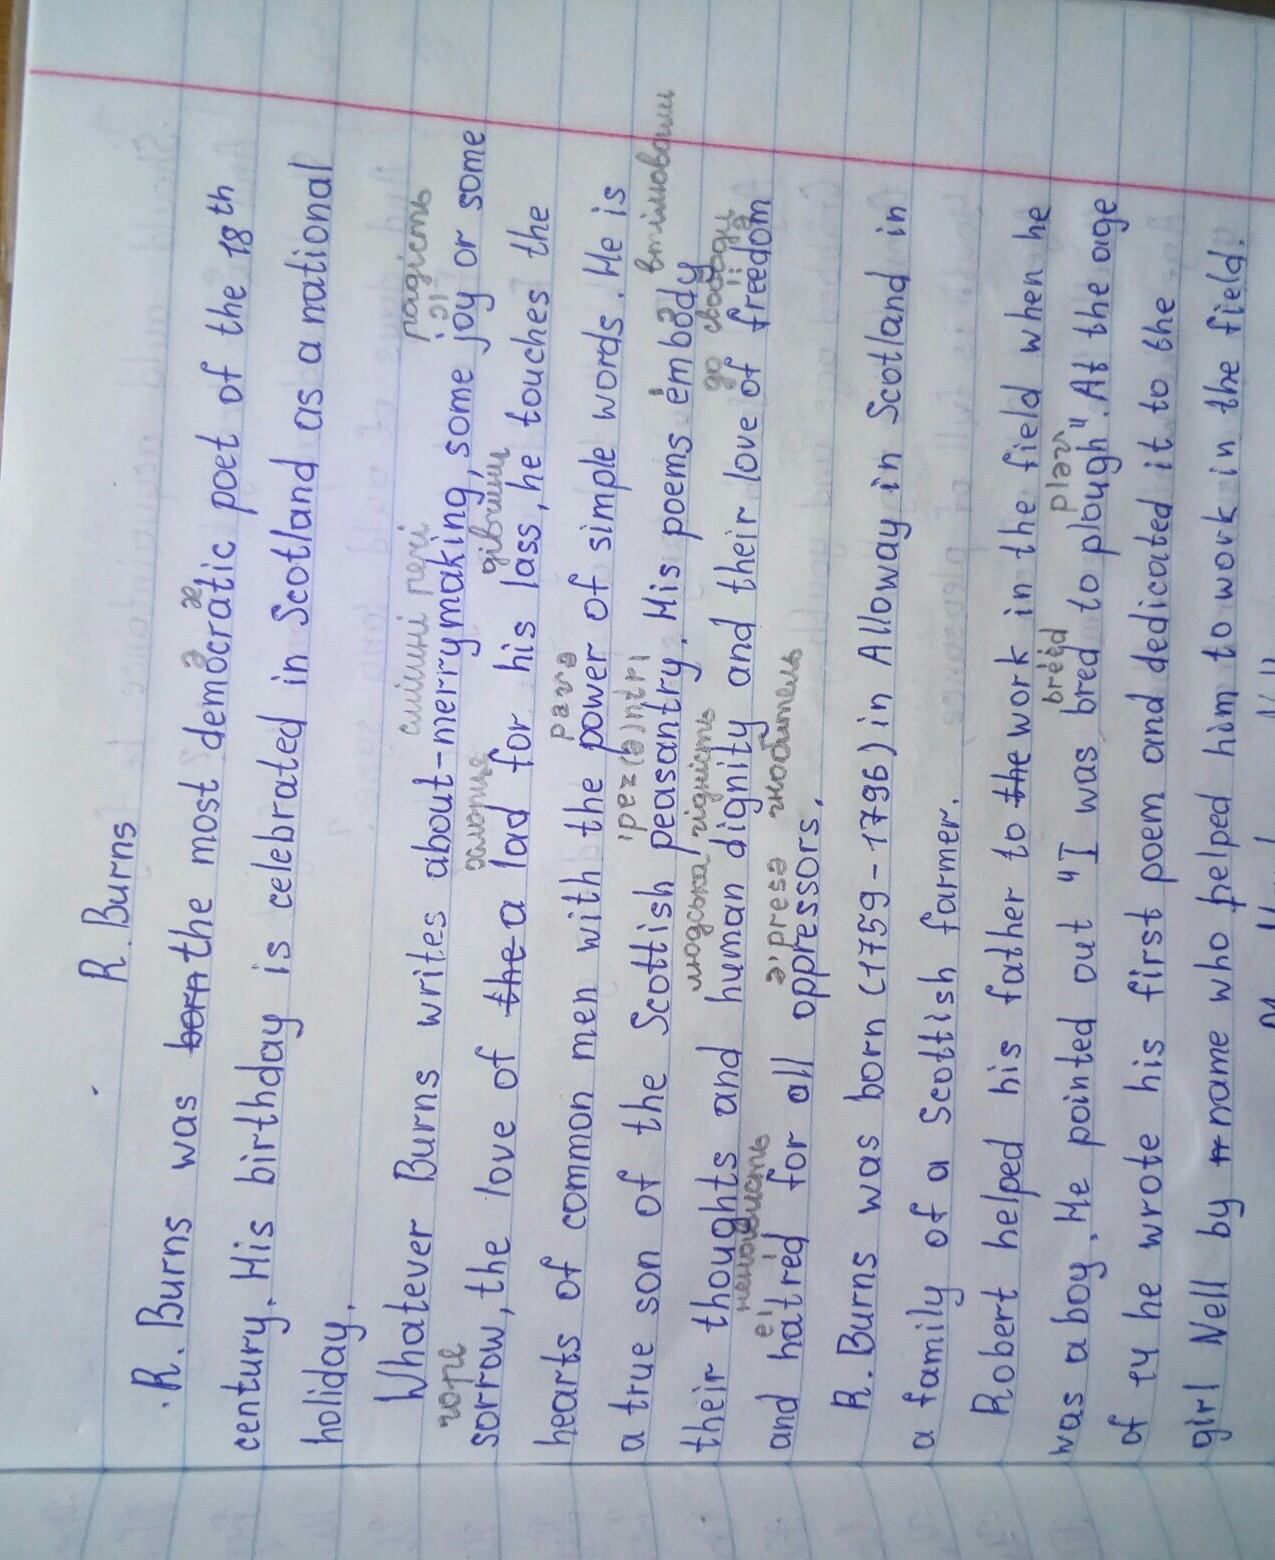 R. Burns
R. Burns was born the most democratic poet of the 18th
century. His birthday is celebrated in Scotland as a national
holiday.
радість
Whatever Burns writes about - merrymaking, some joy or some
горе хлопця дівчини
sorrow, the love of the a lad for his lass, he touches the
hearts of common men with the power of simple words. He is
втілювати
a true son of the Scottish peasantry. His poems embody
людська гідність до свободи
their thoughts and human dignity and their love of freedom
ненависть гнобитель
and hatred for all oppressors.
R. Burns was born (1759-1796) in Alloway in Scotland in
a family of a Scottish farmer.
Robert helped his father to the work in the field when he
bre:d
was a boy. He pointed out "I was bred to plough". At the age
of 14 he wrote his first poem and dedicated it to the
girl Nell by name who helped him to work in the field.